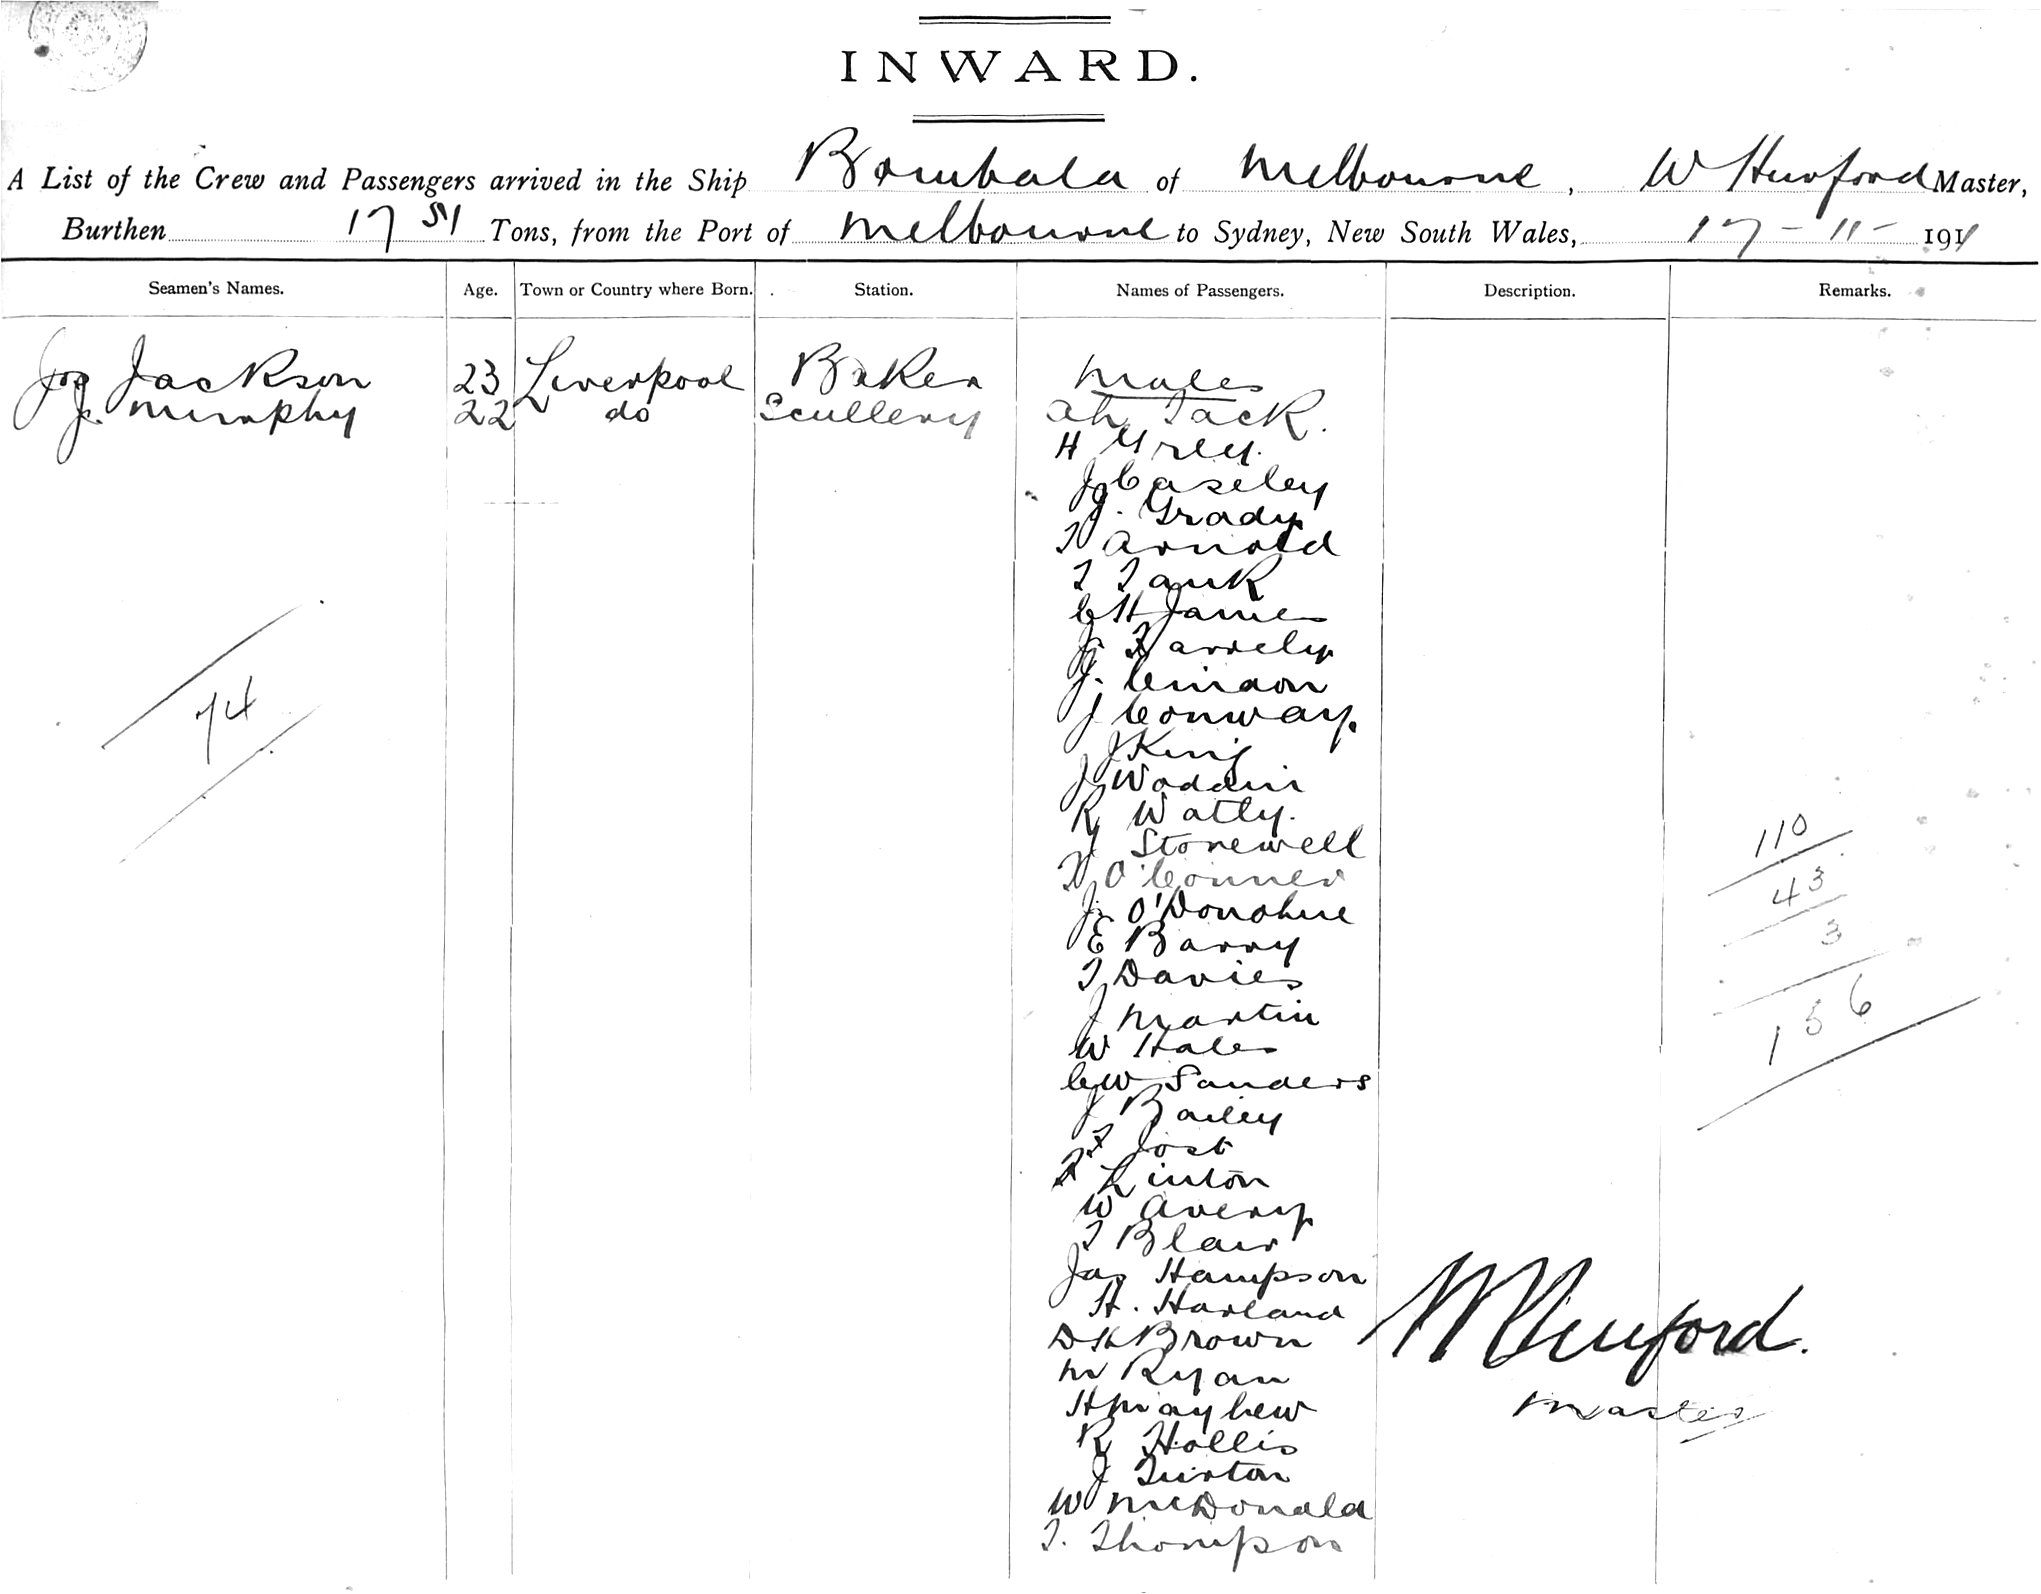 INWARD.
A List of the Crew and Passengers arrived in the Ship Bombala of Melbourne, W Hurford Master,
Burthen 1751 Tons, from the Port of Melbourne to Sydney, New South Wales, 17-11-1911
Seamen's Names. Age. Town or Country where Born. Station. Names of Passengers. Description. Remarks.
Jos Jackson 23 Liverpool Baker Males
J. Murphy 22 do Scullery Ah Jack.
H Grey.
J Caseley
J. Grady
T Arnold
T Tank
C H James
J Farrely
J. Cindon
J Conway.
J King
J Waddin
R Watly.
J Stonewell
O'Conner
J O'Donohue
E Barry
T Davies
J Martin
W Hales
C W Sanders
J Bailey
Jost
Linton
W Avery
T Blair
Jas Hampson
H. Harland
D H Brown
M Ryan
H Mayhew
R Hollis
J Turton
W McDonald
T. Thompson
74
110
43
3
156
W Hurford.
Master